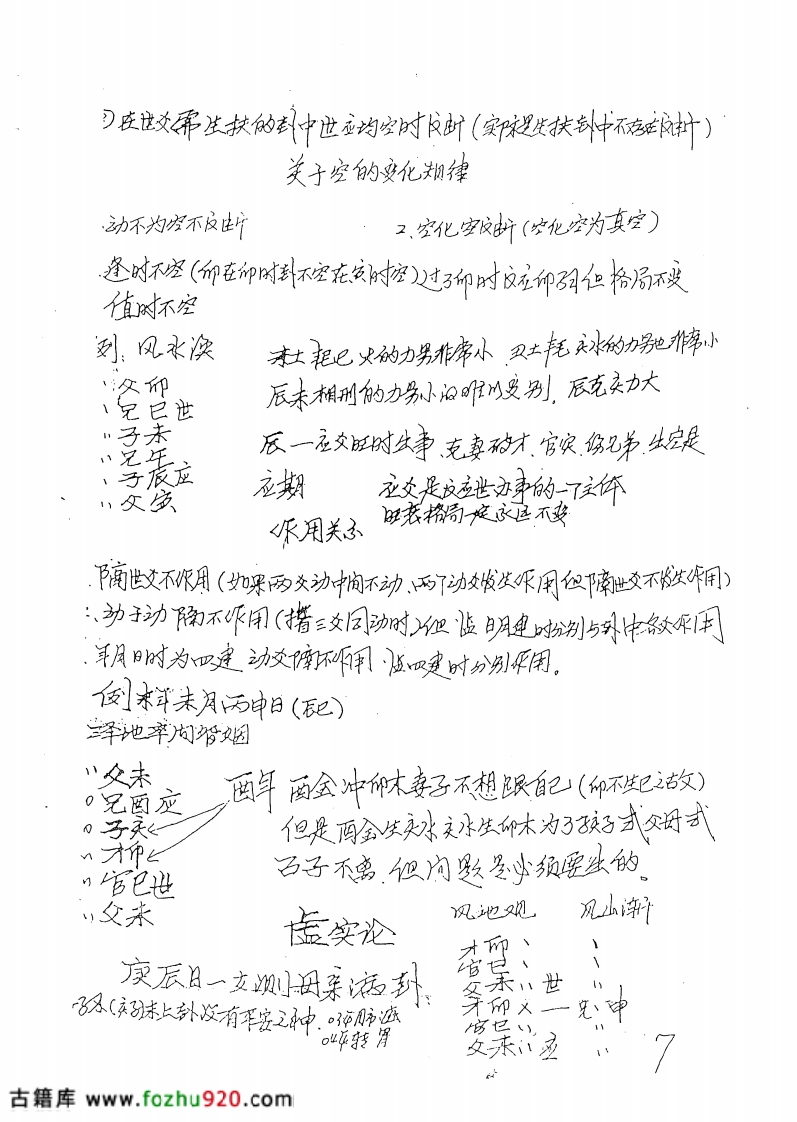 在世爻需生扶的卦中世应均空时反断(实际是生扶卦中不存在反断)
关于空的变化规律
动不为空不反断
2、空化空反断(空化空为真空)
逢时不空(卯在卯时卦不空在亥时空)过了卯时反应卯弱但格局不变
值时不空
例:风水涣
未土耗巳火的力量非常小 丑土耗亥水的力量也非常小
〃父卯
辰未相刑的力量小的难以变别,辰克亥力大
、兄巳世
〃子未
辰一应爻旺时出事、克妻破才、官灾、伤兄弟、出空是
〃兄午
、子辰应
应期 应爻是反应世办事的一个主体
〃父寅
旺衰格局一定永远不变
作用关系
隔世爻不作用(如果两爻动中间不动、两个动爻发生作用但隔世爻不发生作用)
动于动隔不作用(指三爻同动时)但临日月建时分别与卦中各爻作用
年月日时为四建 动爻隔不作用 临四建时分别作用。
例 未年未月丙申日(辰巳)
泽地萃问婚姻
〃父未
酉年 酉金冲卯木妻子不想跟自己(卯不生巳之故)
兄酉应
子亥
但是酉金生亥水亥水生卯木为了孩子或父母或
才卯
面子不离,但问题是必须要出的。
〃官巳世
〃父未
虚实论
风地观 风山渐
才卯、 、
官巳、 、
庚辰日一女测母亲病卦:
父未〃世 〃
才卯X—兄申
官巳〃 〃
父未〃应 〃
7
古籍库 www.fozhu920.com